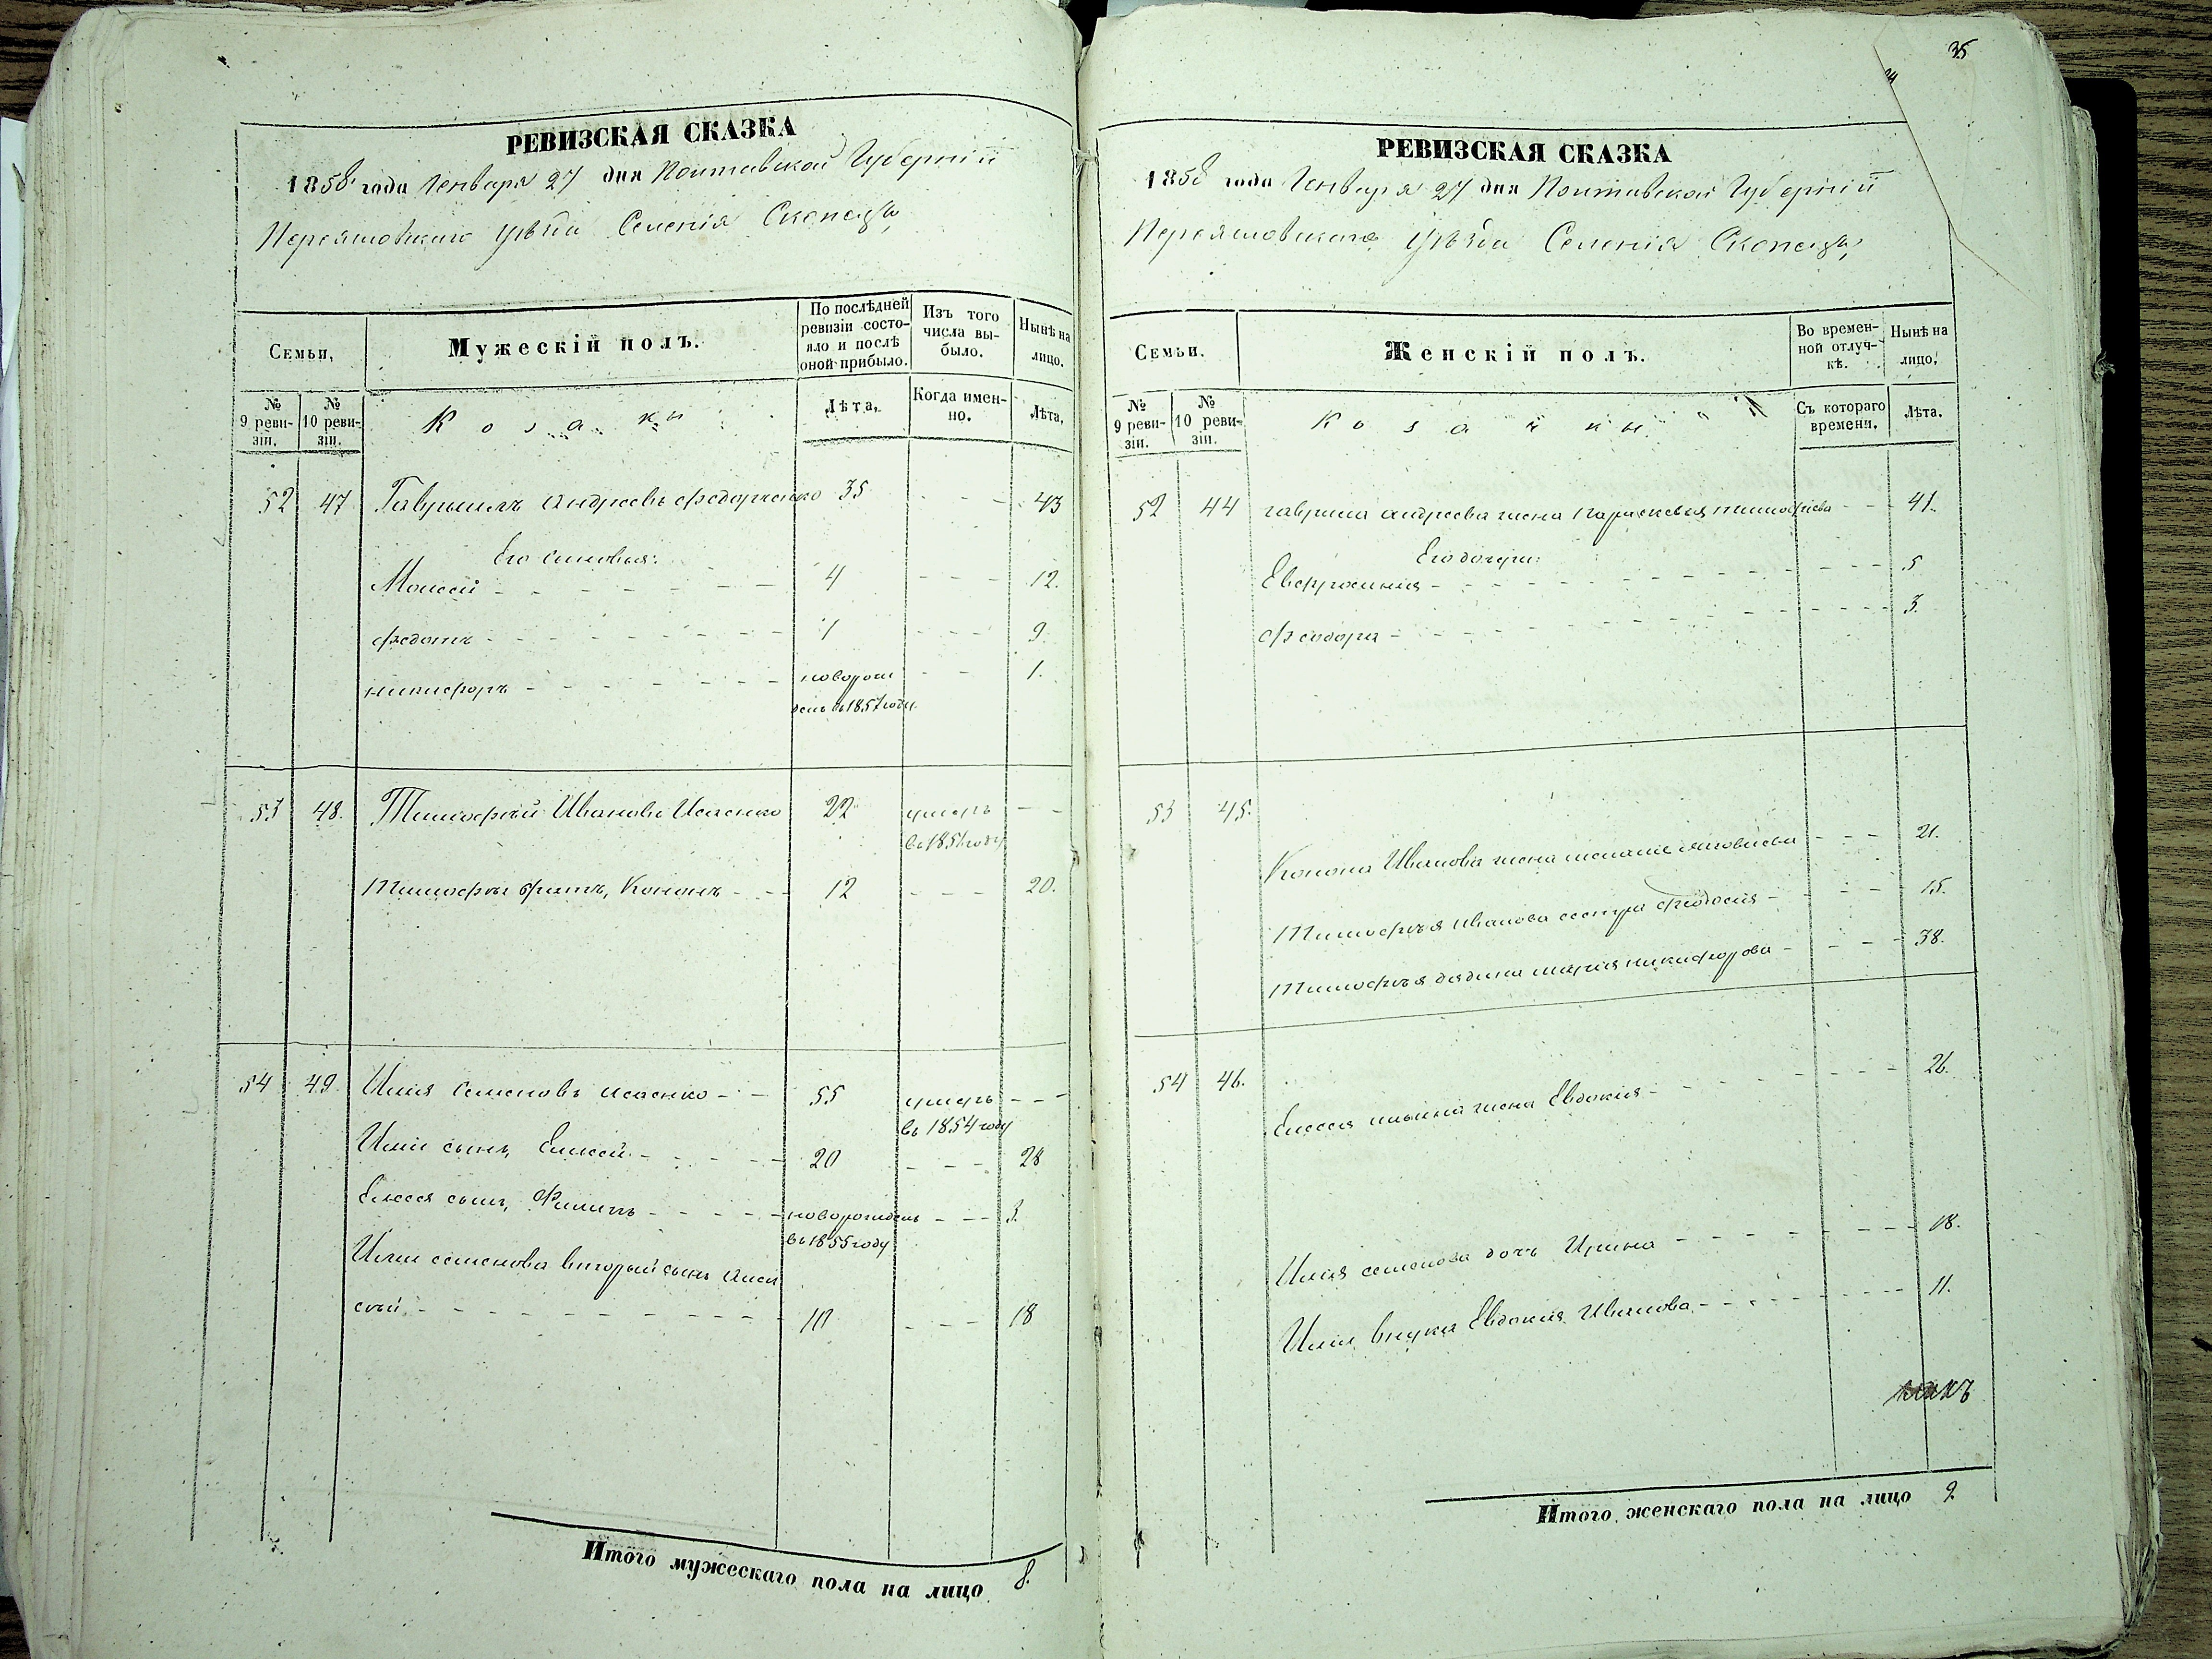 35
РЕВИЗСКАЯ СКАЗКА
1858 года Генваря 27 дня Полтавской Губерніи
Переяславскаго уѣзда Селенія Скопецъ,
Семьи,
Мужескій полъ.
По послѣдней ревизіи состояло и послѣ оной прибыло.
Изъ того числа выбыло.
Нынѣ на лицо.
№ 9 ревизіи.
№ 10 ревизіи.
Козаки
Лѣта.
Когда именно.
Лѣта.
52 47 Гавриилъ Андреевъ Федорченко 35 - - - 43
Его сыновья:
Моисей - - - 4 - - - 12.
Федотъ - - - 1 - - - 9.
Никифоръ - - - новорож - - 1.
денъ въ 1857 году.
53 48. Тимофѣй Ивановъ Исаенко 22 умеръ - -
въ 1851 году
Тимофея братъ, Кононъ - - - 12 - - - 20.
54 49. Илія Семеновъ Исаенко - - 55 умеръ - - -
въ 1854 году
Иліи сынъ Елисей - - - 20 - - - 28
Елисея сынъ, Филипъ - - - новорожденъ - - - 3.
въ 1855 году
Иліи Семенова вторый сынъ
10 - - - 18
Итого мужескаго пола на лицо 8.
РЕВИЗСКАЯ СКАЗКА
1858 года Генваря 27 дня Полтавской Губерніи
Переяславскаго уѣзда Селенія Скопецъ,
Семьи.
Женскій полъ.
Во временной отлучкѣ.
Нынѣ на лицо,
№ 9 ревизіи.
№ 10 ревизіи.
Козачки
Съ котораго времени.
Лѣта.
52 44 Гаврила Андреева жена Параскевья Тимофѣева - - 41.
Его дочери:
Евфросинія - - - 5
Феодора - - - 3.
53 45.
Конона Иванова жена - - - 21.
Тимофѣя Иванова сестра Феодосія - - - 15.
Тимофѣя дядина Марія Никифорова - - - 38.
54 46.
Елисея Ильина жена Евдокія - - - 26.
Илія Семенова дочь Ирина - - - 18.
Иліи внука Евдокія Иванова - - - 11.
Итого женскаго пола на лицо 9